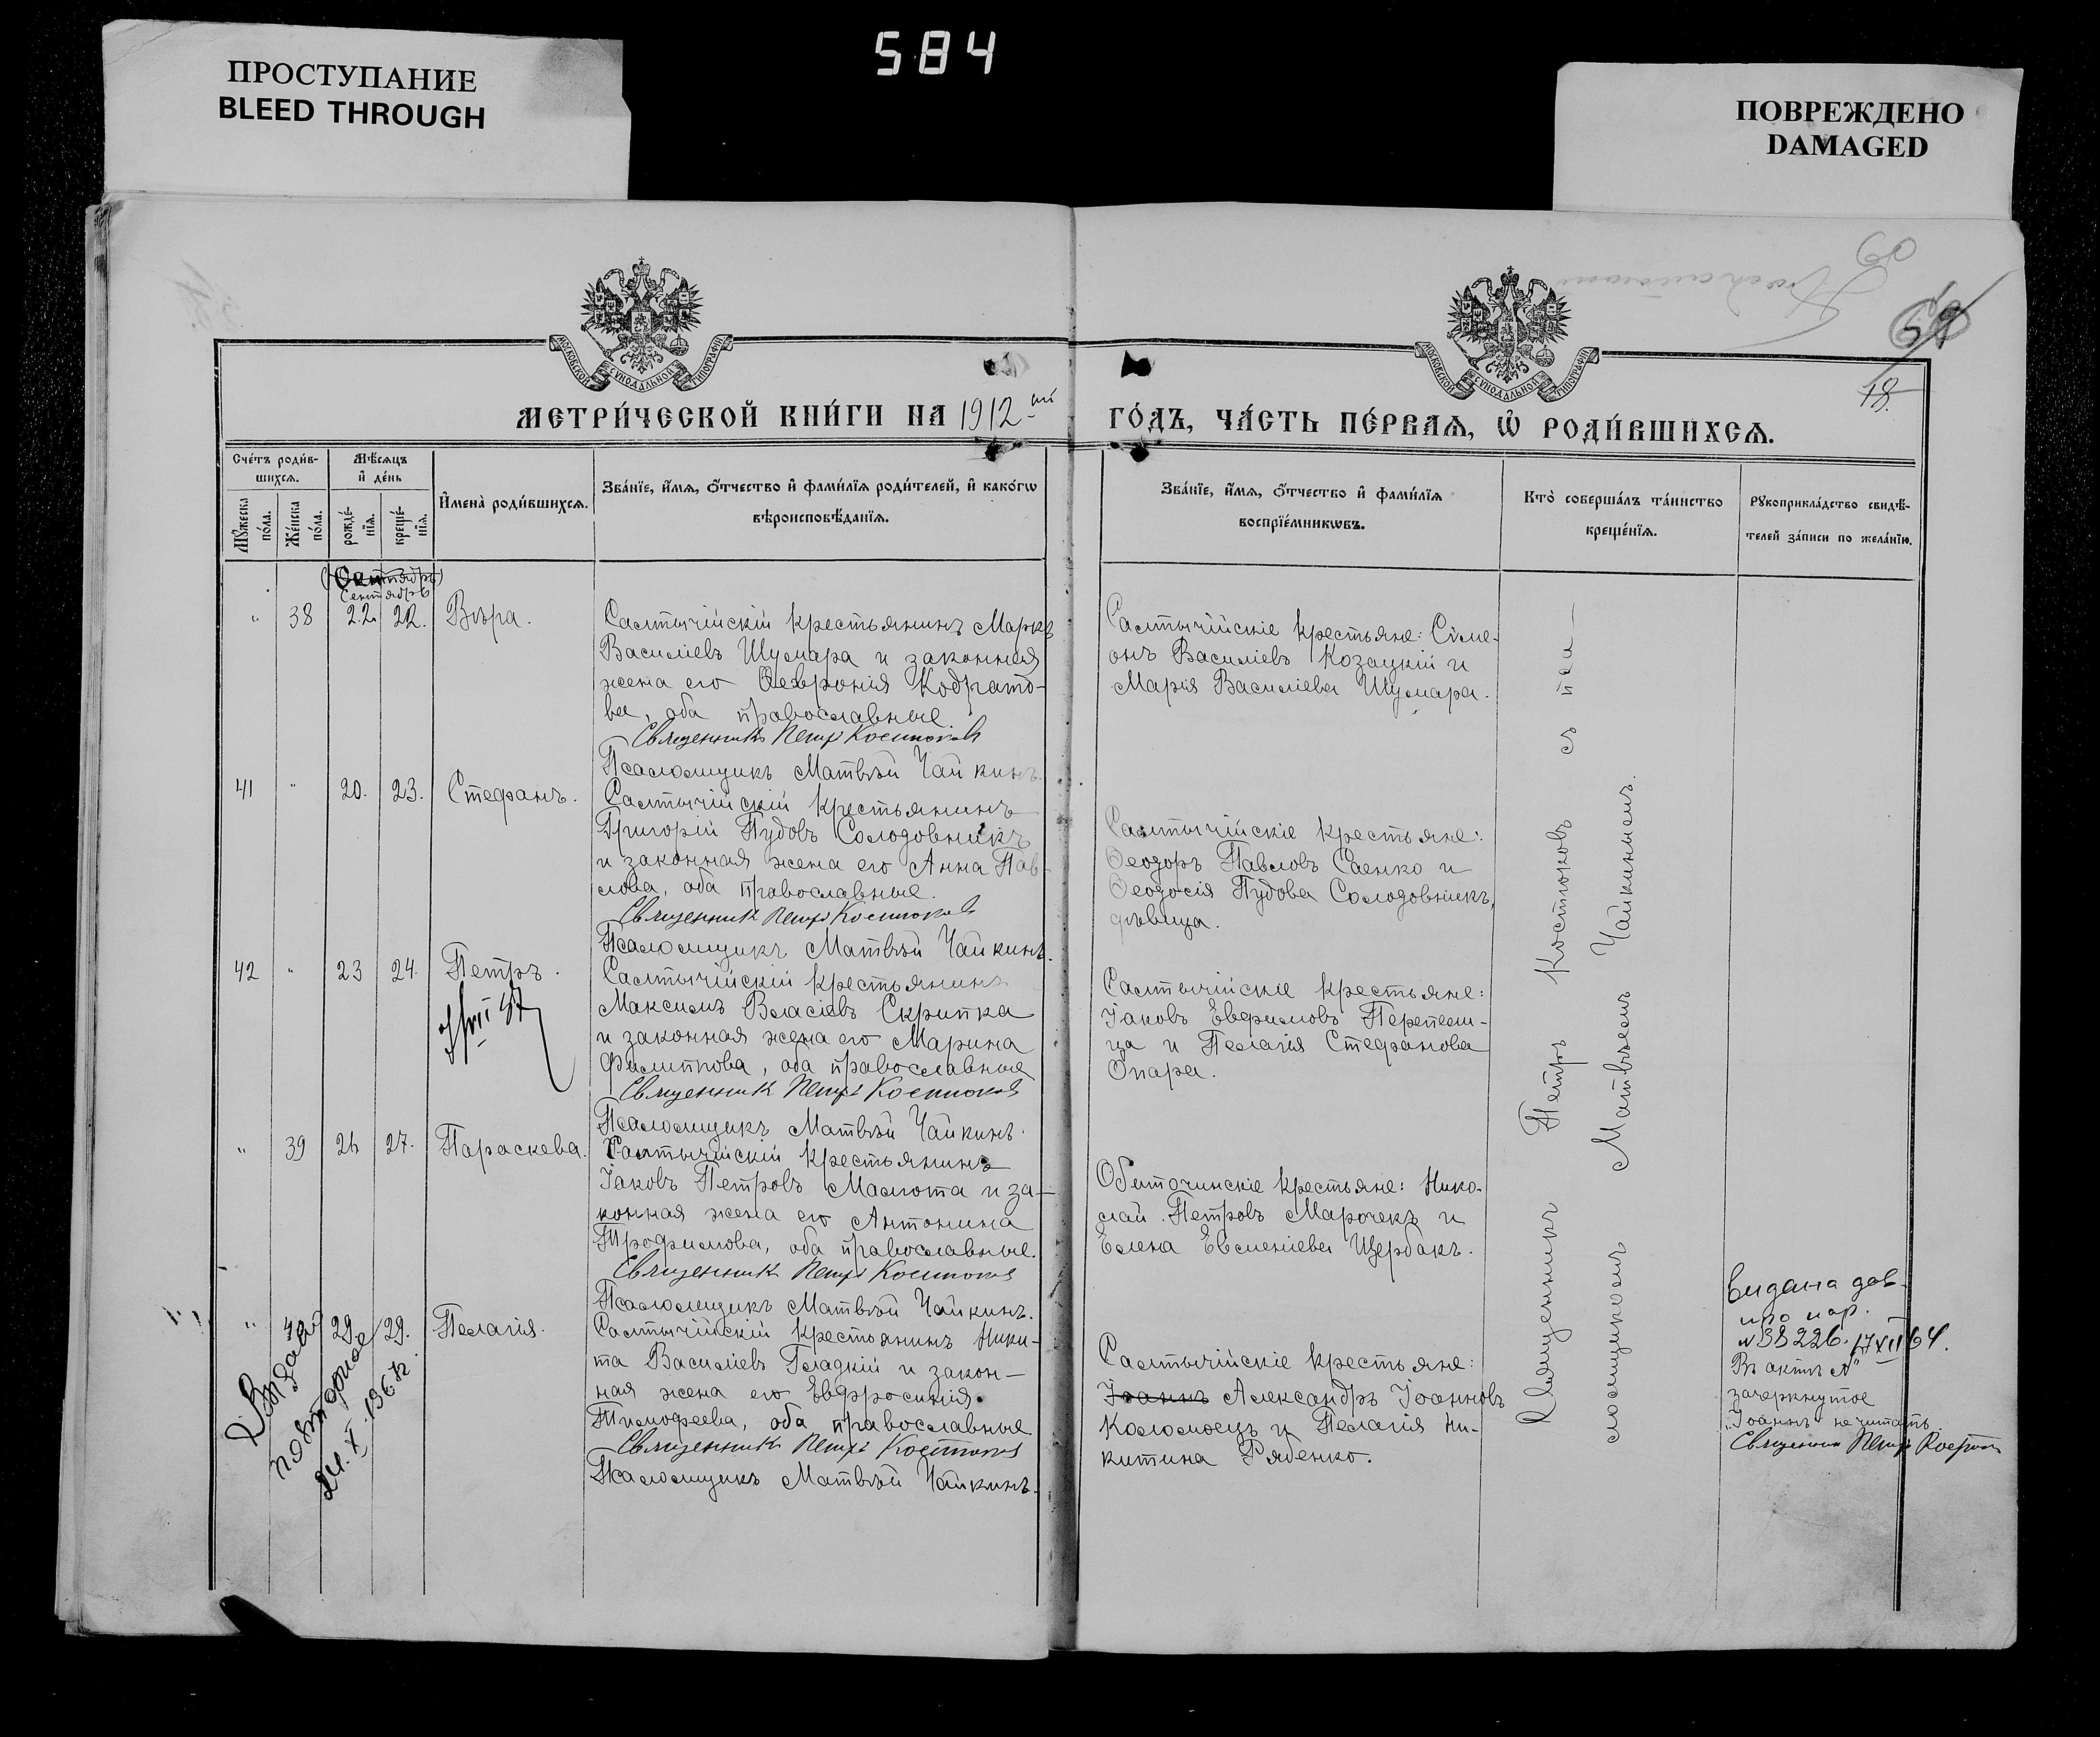 ПРОСТУПАНИЕ
BLEED THROUGH
584
ПОВРЕЖДЕНО
DAMAGED
МОСКОВСКОЙ СѴНОДАЛЬНОЙ ТИПОГРАФІИ
МОСКОВСКОЙ СѴНОДАЛЬНОЙ ТИПОГРАФІИ
18.
МЕТРИ́ЧЕСКОЙ КНИ́ГИ НА 1912-ый
ГО́ДЪ, ЧА́СТЬ ПЕ́РВАѦ, Ѡ҆ РОДИ́ВШИХСѦ.
Сче́тъ роди́в-
шихсѧ.
Мꙋ́жеска по́ла.
Же́нска по́ла.
Мѣ́сѧцъ
и҆ де́нь
рожде́-
нїѧ.
креще́-
нїѧ.
И҆мена̀ роди́вшихсѧ.
Зва́нїе, и҆́мѧ, ѻ҆́тчество и҆ фами́лїѧ роди́телей, и҆ како́гѡ
вѣроисповѣ́данїѧ.
Зва́нїе, и҆́мѧ, ѻ҆́тчество и҆ фами́лїѧ
воспрїе́мникѡвъ.
Кто̀ соверша́лъ та́инство
креще́нїѧ.
Рꙋкоприкла́дство свидѣ́-
телей за́писи по жела́нїю.
Сентябрь
" 38 22. 22. Вѣра.
Салтычійскій крестьянинъ Маркъ
Василіевъ Шумара и законная
жена его Ѳевронія Кодрато-
ва, оба православные.
Священникъ Петръ Костюковъ
Псаломщикъ Матвѣй Чайкинъ.
Салтычійскіе крестьяне: Симе-
онъ Василіевъ Козацкій и
Марія Василіева Шумара.
41 " 20. 23. Стефанъ.
Салтычійскій крестьянинъ
Григорій Пудовъ Солодовникъ
и законная жена его Анна Пав-
лова, оба православные.
Священникъ Петръ Костюковъ
Псаломщикъ Матвѣй Чайкинъ.
Салтычійскіе крестьяне:
Ѳеодоръ Павловъ Саенко и
Ѳеодосія Пудова Солодовникъ,
дѣвица.
42 " 23 24. Петръ.
Салтычійскій крестьянинъ
Максимъ Власіевъ Скрипка
и законная жена его Марина
Филиппова, оба православные
Священникъ Петръ Костюковъ
Псаломщикъ Матвѣй Чайкинъ.
Салтычійскіе крестьяне:
Іаковъ Евфимовъ Перепели-
ца и Пелагія Стефанова
Опара.
" 39 24 27. Параскева.
Салтычійскій крестьянинъ
Іаковъ Петровъ Маслота и за-
конная жена его Антонина
Трофимова, оба православные.
Священникъ Петръ Костюковъ
Псаломщикъ Матвѣй Чайкинъ.
Обиточинскіе крестьяне: Нико-
лай Петровъ Марочекъ и
Елена Евменіева Щербакъ.
" 40 29 29. Пелагія.
Салтычійскій крестьянинъ Ники-
та Василіевъ Гладкій и закон-
ная жена его Евфросинія
Тимофеева, оба православные
Священникъ Петръ Костюковъ
Псаломщикъ Матвѣй Чайкинъ.
Салтычійскіе крестьяне:
Іоаннъ Александръ Іоанновъ
Коломоецъ и Пелагія Ни-
китина Рябенко.
Священникъ Петръ Костюковъ съ пса-
ломщикомъ Матвѣемъ Чайкинымъ.
Выдано
повторное
24. X. 1967г.
видана дов.
про нар.
№ 38226. 17 XII 64.
Въ актѣ №
зачеркнутое
"Іоаннъ не читать
Священникъ Петръ Костюковъ